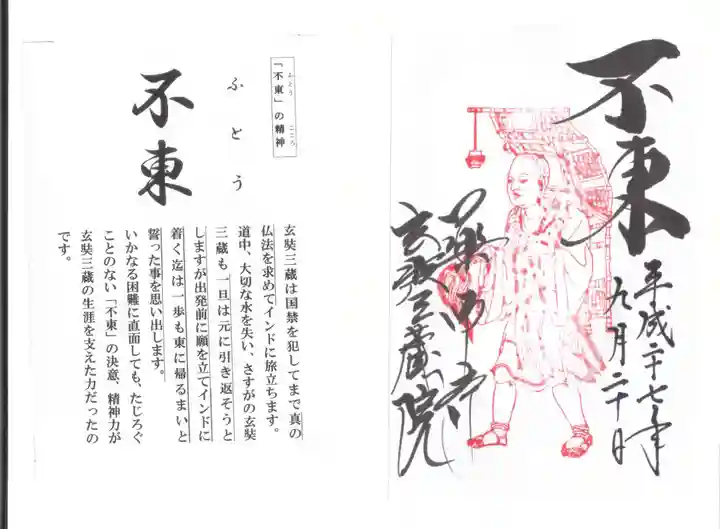 不東
平成二十七年
九月二十日
薬師寺
玄奘三蔵院
「不東」の精神
ふとう
こころ
ふとう
不東
玄奘三蔵は国禁を犯してまで真の
仏法を求めてインドに旅立ちます。
道中、大切な水を失い、さすがの玄奘
三蔵も一旦は元に引き返そうと
しますが出発前に願を立てインドに
着く迄は一歩も東に帰るまいと
誓った事を思い出します。
いかなる困難に直面しても、たじろぐ
ことのない「不東」の決意、精神力が
玄奘三蔵の生涯を支えた力だったの
です。